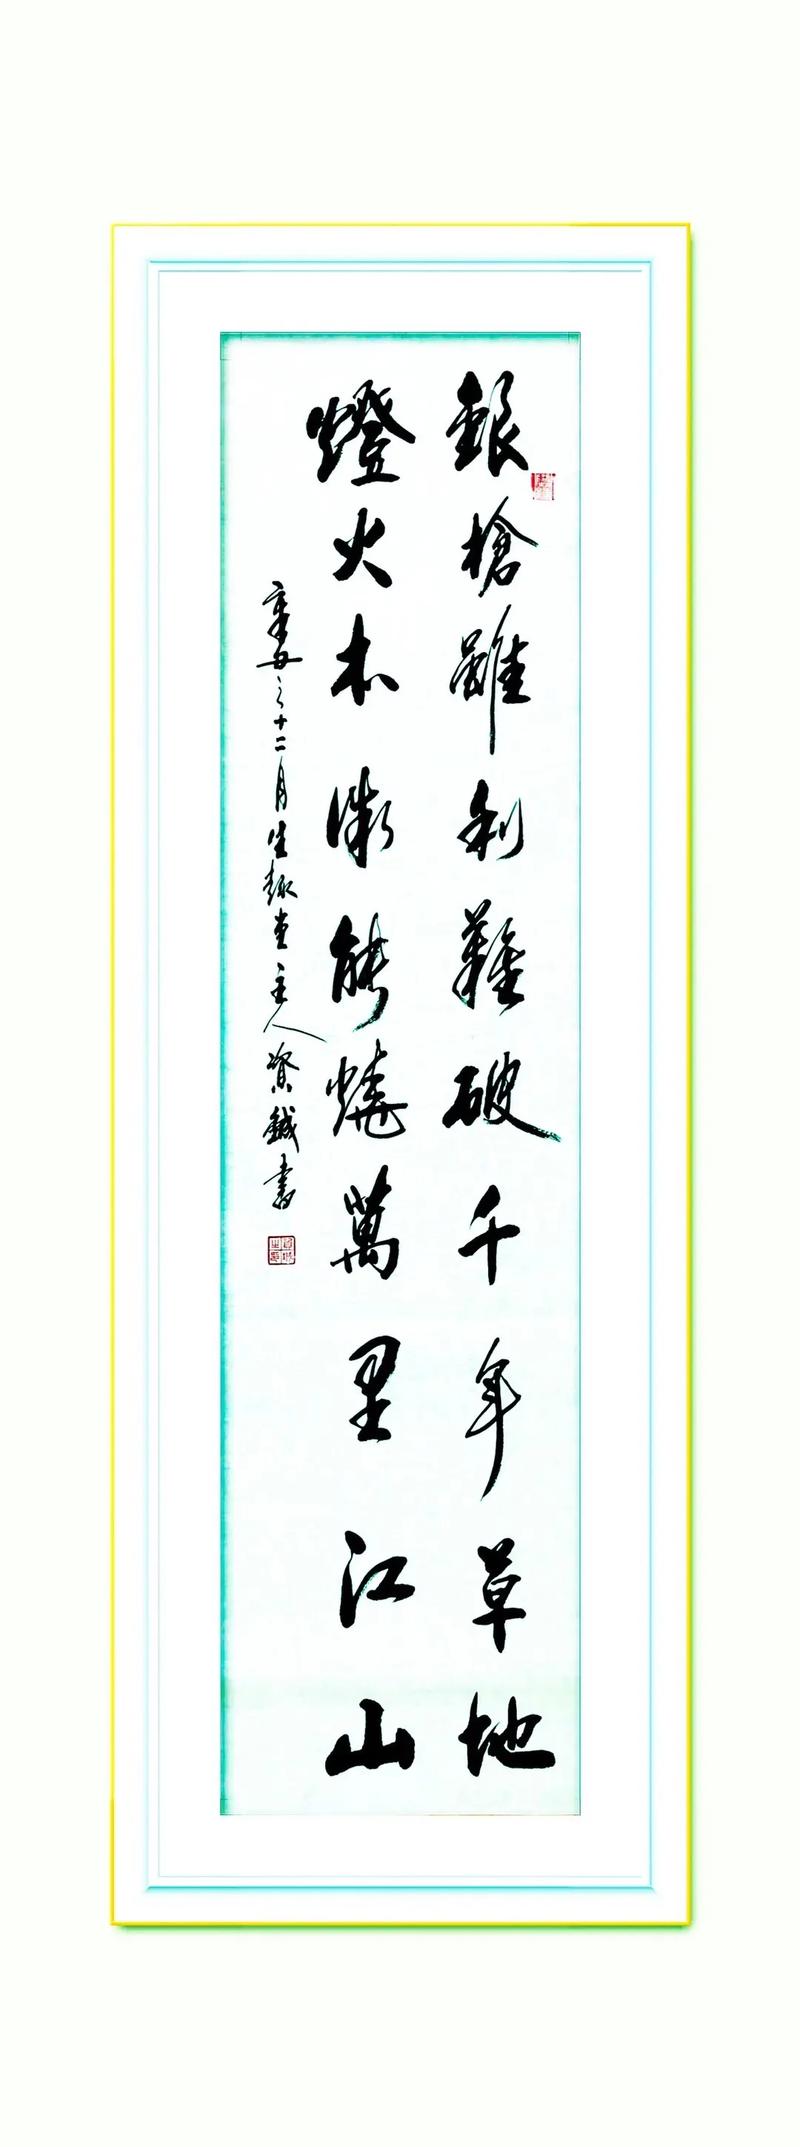 銀槍雖利難破千年草地
燈火本微能燒萬里江山
辛丑之十二月生趣堂主人資鍼書